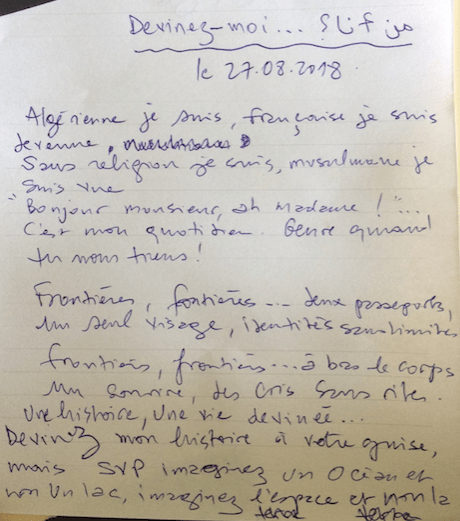 Devinez-moi... من أنا؟
le 27.08.2018
Algérienne je suis, française je suis
devenue,
Sans religion je suis, musulmane je
suis vue
"Bonjour monsieur, ah madame ! "...
C'est mon quotidien. Genre quand
tu nous tiens !
Frontières, fontières... deux passeports,
un seul visage, identités sans limites
frontières, frontières... à bas le corps
un sourire, des cris sans rites.
Une histoire, une vie devinée...
Devinez mon histoire à votre guise,
mais SVP imaginez un Océan et
non un lac, imaginez l'espace et non la
terre